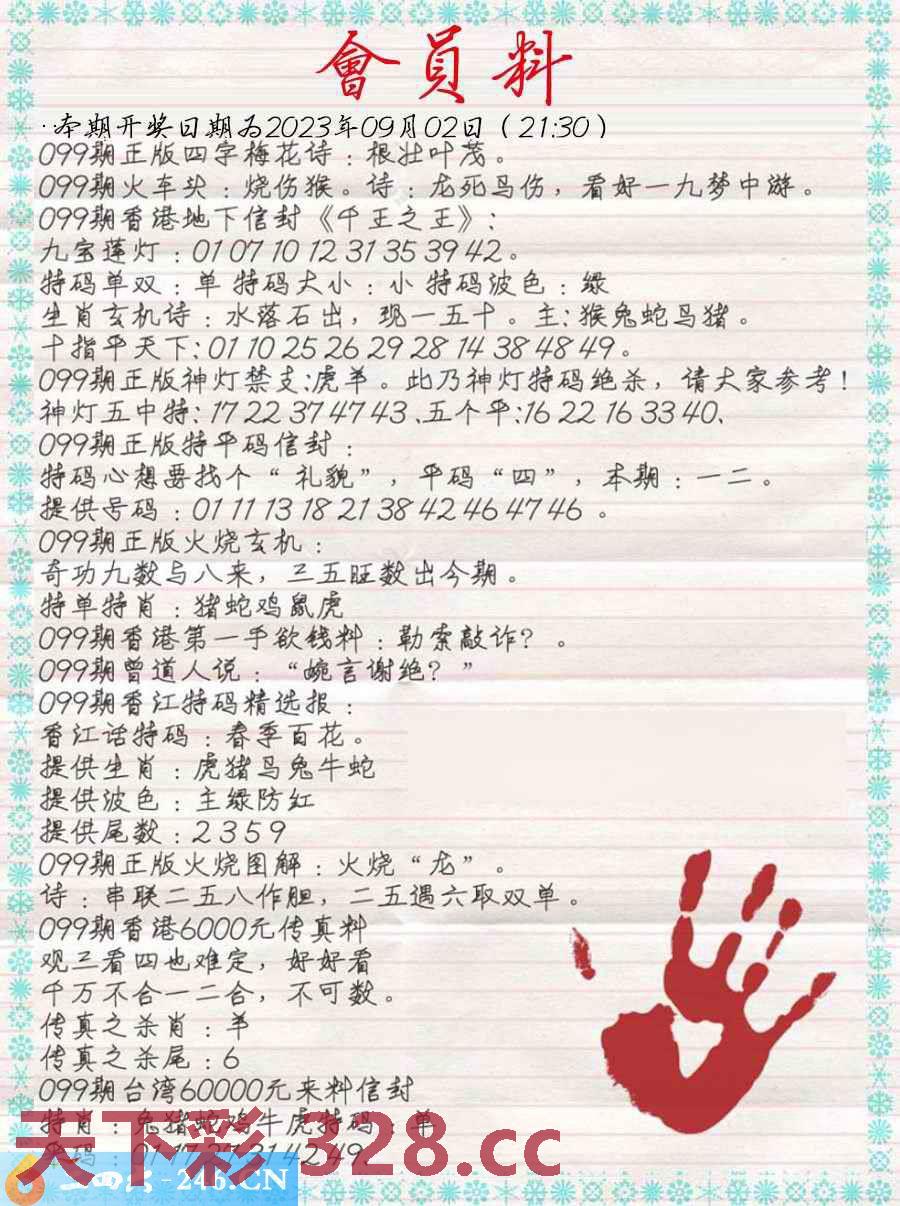 會員料
·本期开奖日期为2023年09月02日（21:30）
099期正版四字梅花诗：根壮叶茂。
099期火车头：烧伤猴。诗：龙死鸟伤，看好一九梦中游。
099期香港地下信封《千王之王》：
九宝莲灯：01 07 10 12 31 35 39 42。
特码单双：单 特码大小：小 特码波色：绿
生肖玄机诗：水落石出，现一五十。主：猴兔蛇马猪。
十指平天下：01 10 25 26 29 28 14 38 48 49。
099期正版神灯禁支:虎羊。此乃神灯特码绝杀，请大家参考！
神灯五中特：17 22 37 47 43、五个平:16 22 16 33 40、
099期正版特平码信封：
特码心想要找个“礼貌”，平码“四”，本期：一二。
提供号码：01 11 13 18 21 38 42 46 47 46 。
099期正版火烧玄机：
奇功九数与八来，三五旺数出今期。
特单特肖：猪蛇鸡鼠虎
099期香港第一手欲钱料：勒索敲诈？。
099期曾道人说：“婉言谢绝？”
099期香江特码精选报：
香江话特码：春季百花。
提供生肖：虎猪马兔牛蛇
提供波色：主绿防红
提供尾数：2 3 5 9
099期正版火烧图解：火烧“龙”。
诗：串联二五八作胆，二五遇六取双单。
099期香港6000元传真料
观三看四也难定，好好看
千万不合一二合，不可数。
传真之杀肖：羊
传真之杀尾：6
099期台湾60000元来料信封
特肖：兔猪蛇鸡牛虎特码：单
平码：01 17 31 42 49
天下彩 328.cc
246.CN